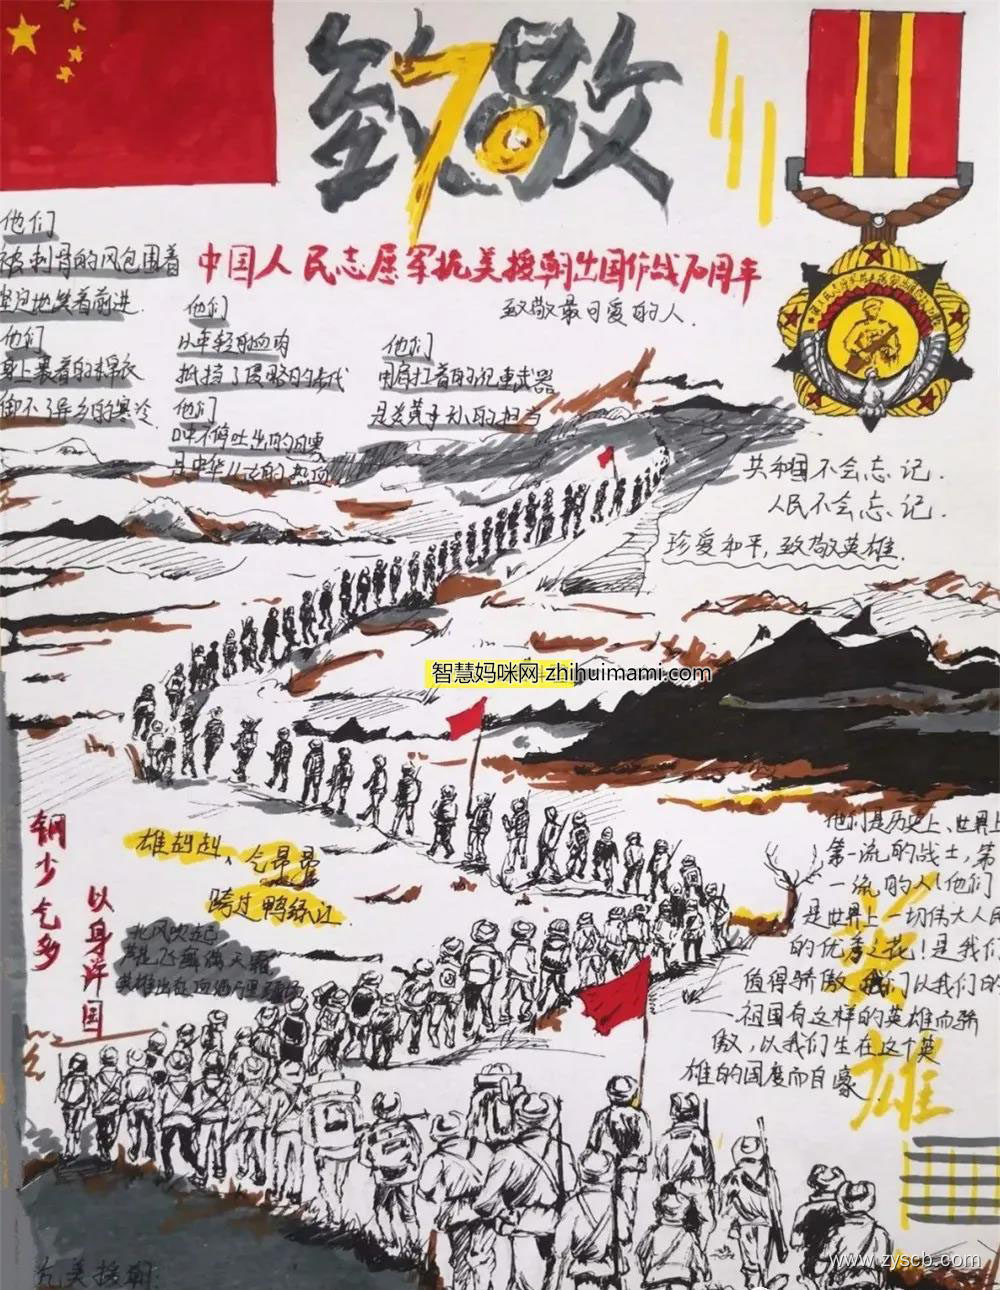 致敬
70
中国人民志愿军抗美援朝出国作战70周年
致敬最可爱的人.
他们
被刺骨的风包围着
坚定地笑着前进.
他们
身上裹着的棉衣
御不了异乡的寒冷
他们
以年轻的血肉
抵挡了侵略的
他们
口中不停吐出的
是中华儿女的热血
他们
用肩扛着的沉重武器
是炎黄子孙的担当
共和国不会忘记.
人民不会忘记.
珍爱和平,致敬英雄.
智慧妈咪网 zhihuimami.com
钢少气多
以身许国
雄赳赳、气昂昂
跨过鸭绿江
北风吹起
他们是历史上、世界上
第一流的战士,第
一流的人!他们
是世界上一切伟大人民
的优秀之花!是我们
值得骄傲,我们以我们的
祖国有这样的英雄而骄
傲,以我们生在这个英
雄的国度而自豪
英雄
抗美援朝
www.zyscb.com